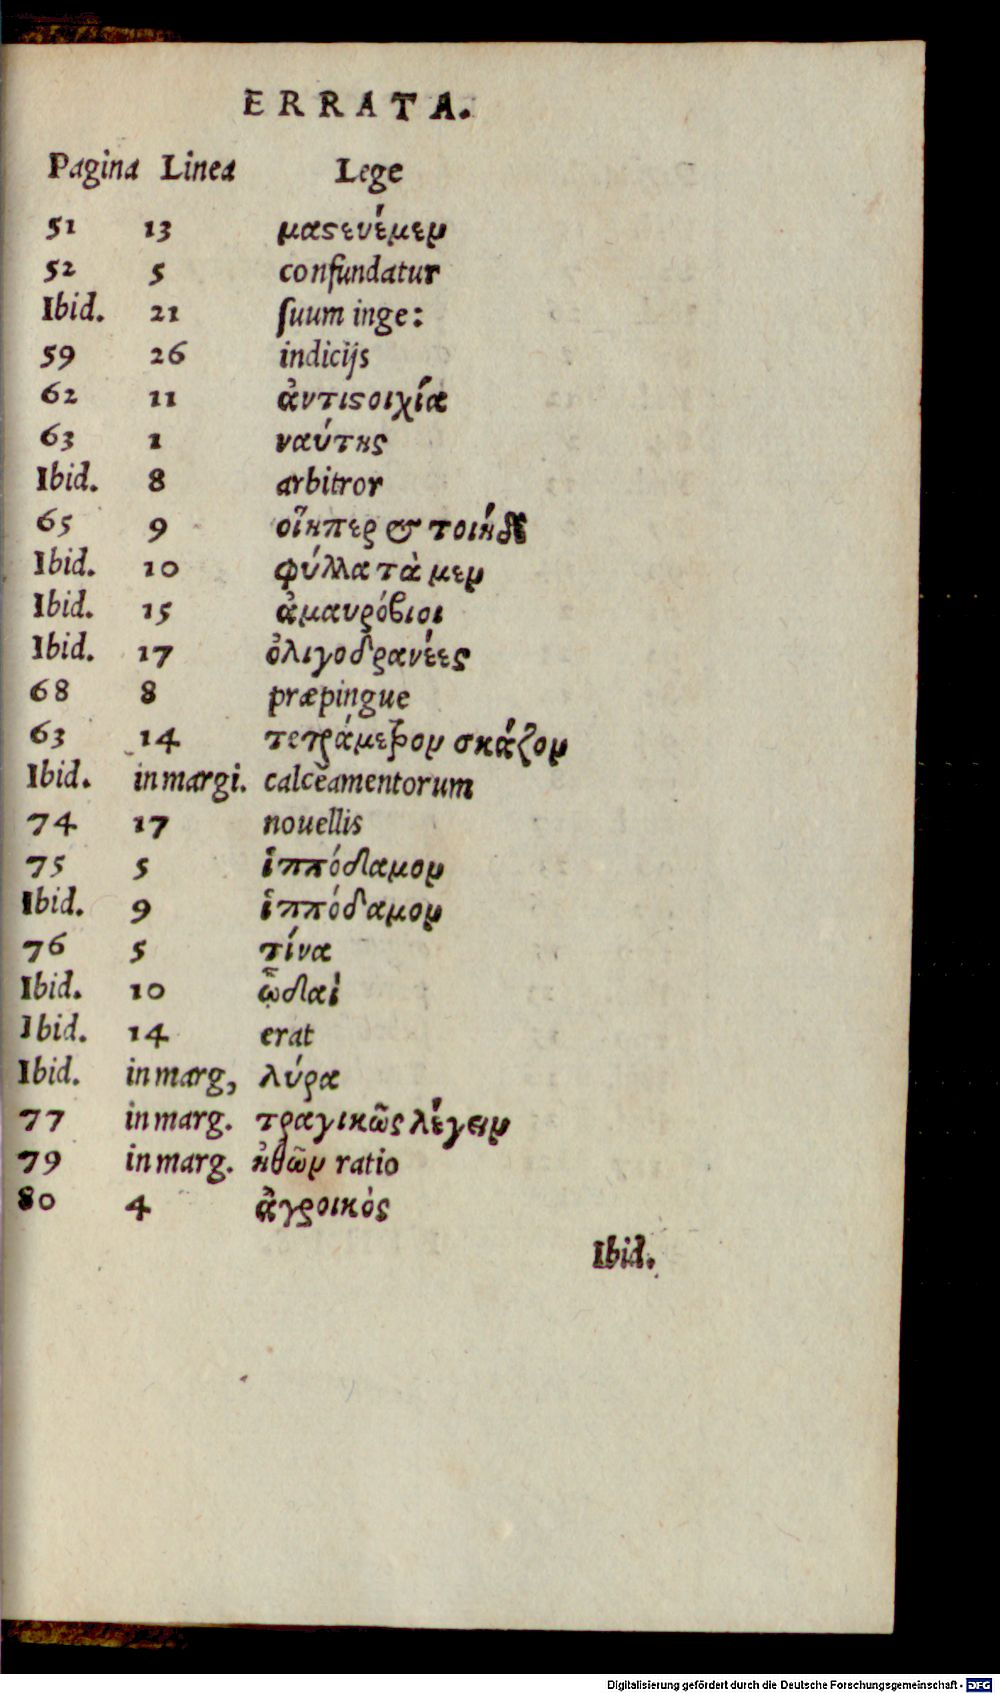 ERRATA.
Pagina Linea Lege
51 13 μαϛευέμεν
52 5 confundatur
Ibid. 21 ſuum inge:
59 26 indicijs
62 11 ἀντιϛοιχία
63 1 ναύτης
Ibid. 8 arbitror
65 9 οἵηπερ & τοιήδε
Ibid. 10 φύλλα τὰ μεν
Ibid. 15 ἀμαυρόβιοι
Ibid. 17 ὀλιγοδρανέες
68 8 præpingue
63 14 τετράμετρον σκάζον
Ibid. in margi. calcĕamentorum
74 17 nouellis
75 5 ἱππόδαμον
Ibid. 9 ἱππόδαμον
76 5 τίνα
Ibid. 10 ᾧδαὶ
Ibid. 14 erat
Ibid. in marg, λύρα
77 in marg. τραγικῶς λέγειν
79 in marg. ἠθῶν ratio
80 4 ἀγροικὸς
Ibid.
Digitalisierung gefördert durch die Deutsche Forschungsgemeinschaft - DFG